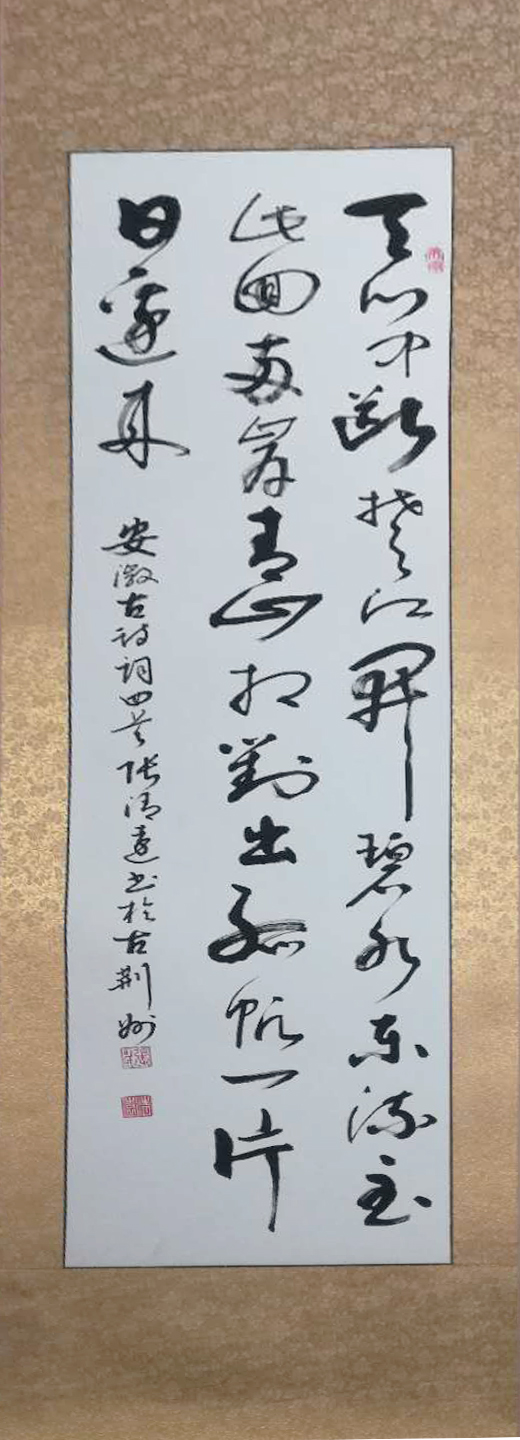 天门中断楚江開碧水东流至
此回两岸青山相對出孤帆一片
日邊来
安徽古诗词四首张清远书於古荆州